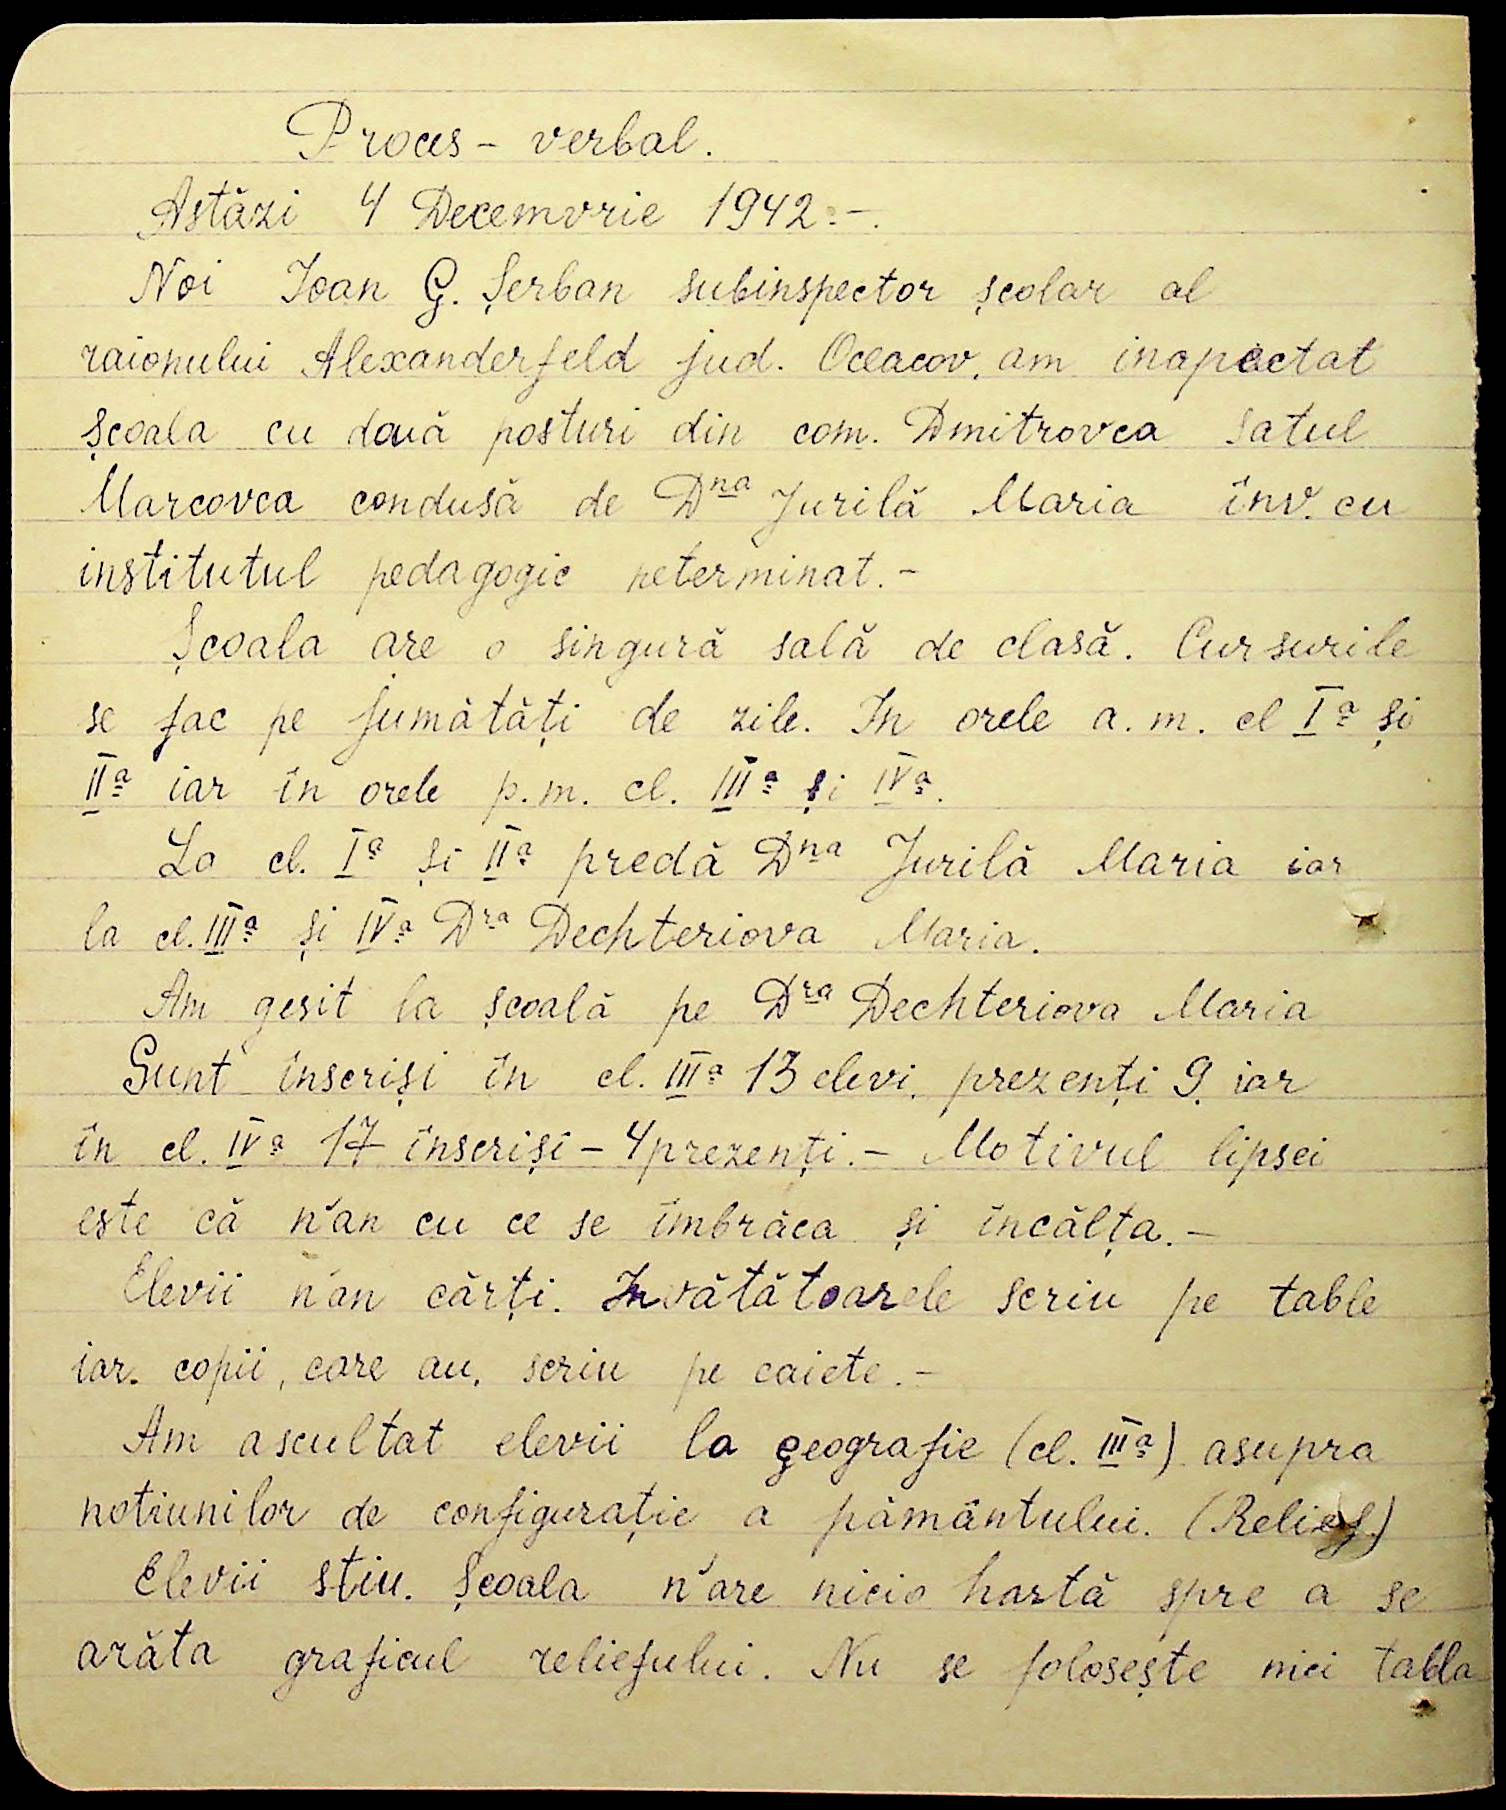 Proces - verbal.
Astăzi 4 Decemvrie 1942.-.
Noi Ioan G. Șerban subinspector școlar al
raionului Alexanderfeld jud. Oceacov, am inapectat
școala cu două posturi din com. Dmitrovca satul
Marcovca condusă de Dna Jurilă Maria înv. cu
institutul pedagogic neterminat.-
Școala are o singură sală de clasă. Cursurile
se fac pe jumătăți de zile. In orele a.m. cl Iª și
IIª iar în orele p.m. cl. IIIª și IVª.
La cl. Iª și IIª predă Dna Jurilă Maria iar
la cl. IIIª și IVª Dra Dechteriova Maria.
Am gesit la școală pe Dra Dechteriova Maria
Sunt înscriși în cl. IIIª 13 elevi, prezenți 9, iar
în cl. IVª 17 înscriși - 4 prezenți.- Motivul lipsei
este că n'an cu ce se îmbrăca și încălța.-
Elevii n'an cărți. Invătătoarele scriu pe table
iar. copii, care au, scriu pe caiete.-
Am ascultat elevii la geografie (cl. IIIª) asupra
notiunilor de configurație a pământului. (Relief.)
Elevii stiu. Școala n'are nicio hartă spre a se
arăta graficul reliefului. Nu se folosește nici tabla